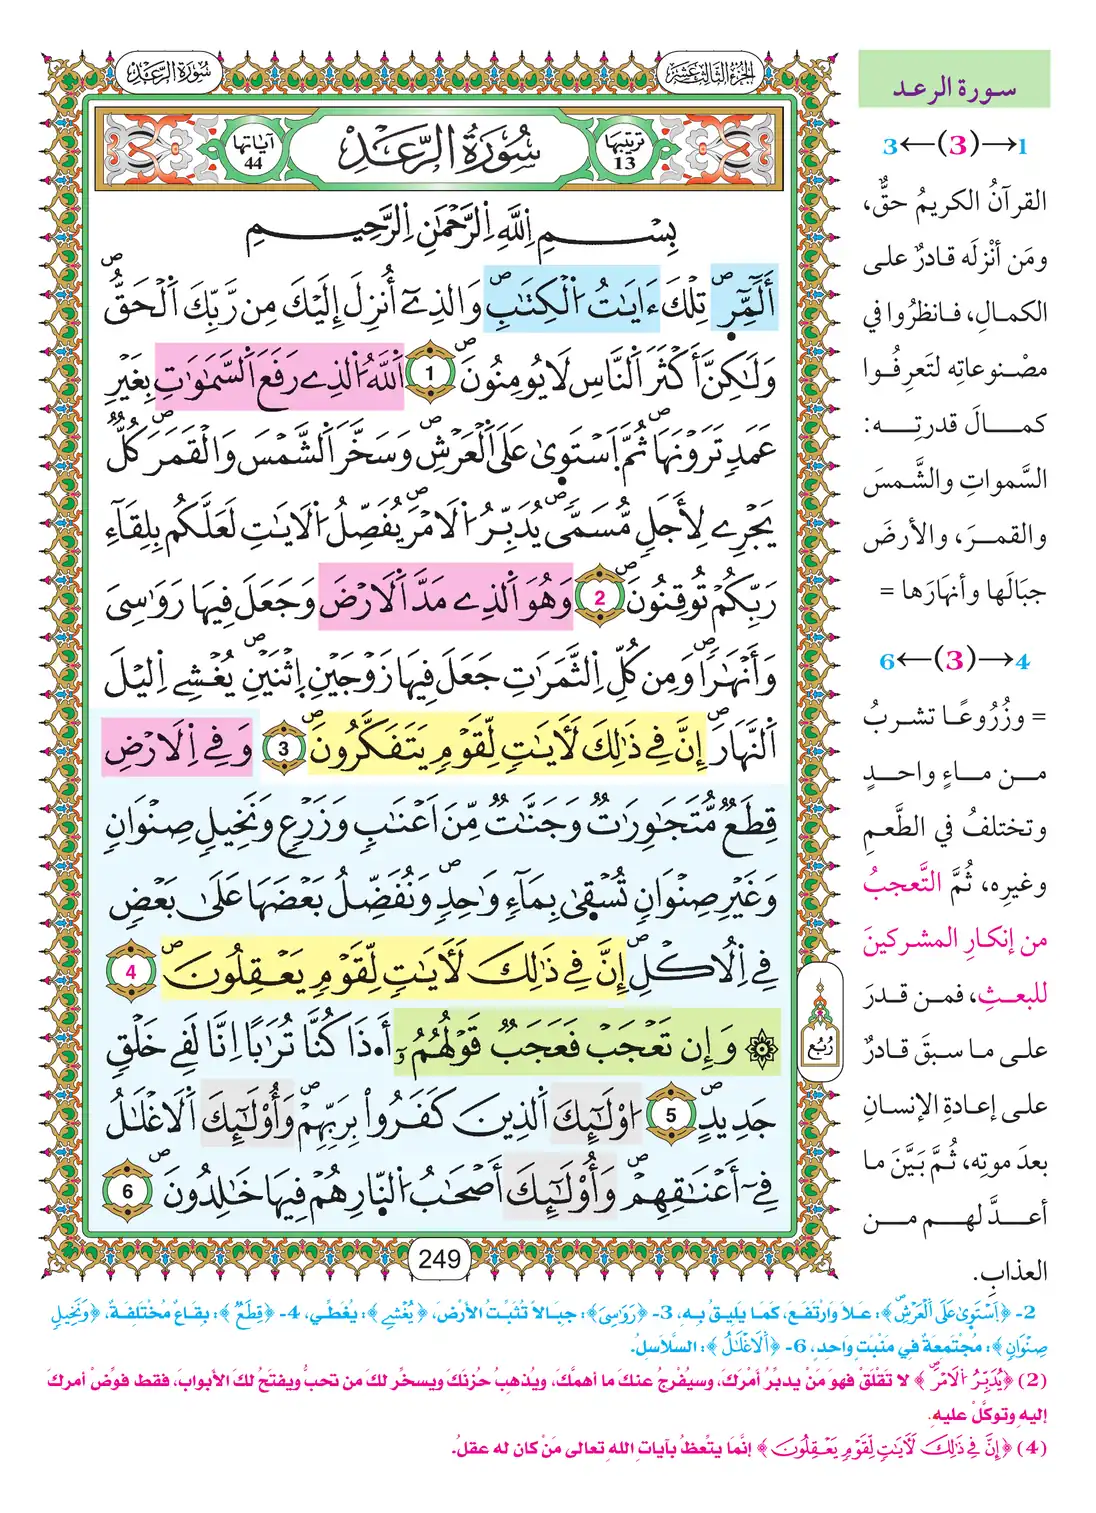 سُورَةُ الرَّعْدِ
الجُزْءُ الثَّالِثَ عَشَرَ
سورة الرعد
آيَاتُهَا 44
سُورَةُ الرَّعْدِ
تَرْتِيبُهَا 13
بِسْمِ اِ۬للَّهِ اِ۬لرَّحْمَٰنِ اِ۬لرَّحِيمِ
أَلَٓمِّٓر۪ۖ تِلْكَ ءَايَٰتُ اُ۬لْكِتَٰبِۖ وَالذِےٓ أُنزِلَ إِلَيْكَ مِن رَّبِّكَ اَ۬لْحَقُّۖ
وَلَٰكِنَّ أَكْثَرَ اَ۬لنَّاسِ لَا يُومِنُونَۖ 1 اَ۬للَّهُ اُ۬لذِے رَفَعَ اَ۬لسَّمَٰوَٰتِ بِغَيْرِ
عَمَدٖ تَرَوْنَهَاۖ ثُمَّ اَ۪سْتَو۪يٰ عَلَي اَ۬لْعَرْشِۖ وَسَخَّرَ اَ۬لشَّمْسَ وَالْقَمَرَۖ كُلّٞ
يَجْرِے لِأَجَلٖ مُّسَمّيٗۖ يُدَبِّرُ اُ۬لَامْرَۖ يُفَصِّلُ اُ۬لَايَٰتِ لَعَلَّكُم بِلِقَآءِ
رَبِّكُمْ تُوقِنُونَۖ 2 وَهُوَ اَ۬لذِے مَدَّ اَ۬لَارْضَ وَجَعَلَ فِيهَا رَوَٰسِيَ
وَأَنْهَٰراٗۖ وَمِن كُلِّ اِ۬لثَّمَرَٰتِ جَعَلَ فِيهَا زَوْجَيْنِ اِ۪ثْنَيْنِۖ يُغْشِے اِ۬ليْلَ
اَ۬لنَّهَارَۖ إِنَّ فِے ذَٰلِكَ لَأٓيَٰتٖ لِّقَوْمٖ يَتَفَكَّرُونَۖ 3 وَفِے اِ۬لَارْضِ
قِطَعٞ مُّتَجَٰوِرَٰتٞ وَجَنَّٰتٞ مِّنَ اَعْنَٰبٖ وَزَرْعٖ وَنَخِيلٖ صِنْوَانٖ
وَغَيْرِ صِنْوَانٖ تُسْق۪يٰ بِمَآءٖ وَٰحِدٖۖ وَنُفَضِّلُ بَعْضَهَا عَلَيٰ بَعْضٖ
فِے اِ۬لُاكْلِۖ إِنَّ فِے ذَٰلِكَ لَأٓيَٰتٖ لِّقَوْمٖ يَعْقِلُونَۖ 4
۞ وَإِن تَعْجَبْ فَعَجَبٞ قَوْلُهُمُۥٓ أَ۟ذَا كُنَّا تُرَٰباً اِنَّا لَفِے خَلْقٖ
جَدِيدٍۖ 5 ا۟وْلَٰٓئِكَ اَ۬لذِينَ كَفَرُواْ بِرَبِّهِمْۖ وَأُوْلَٰٓئِكَ اَ۬لَاغْلَٰلُ
فِےٓ أَعْنَٰقِهِمْۖ وَأُوْلَٰٓئِكَ أَصْحَٰبُ اُ۬لنّ۪ارِ هُمْ فِيهَا خَٰلِدُونَۖ 6
رُبُع
249
1→(3)←3
القرآنُ الكريمُ حقٌّ،
ومَن أنْزلَه قادرٌ على
الكمالِ، فانظرُوا في
مصْنوعاتِه لتَعرِفُوا
كمالَ قدرتِه:
السَّمواتِ والشَّمسَ
والقمرَ، والأرضَ
جبَالَها وأنهَارَها =
4→(3)←6
= وزُرُوعًا تشربُ
من ماءٍ واحدٍ
وتختلفُ في الطَّعمِ
وغيرِه، ثُمَّ التَّعجبُ
من إنكارِ المشركينَ
للبعثِ، فمن قدرَ
على ما سبقَ قادرٌ
على إعادةِ الإنسانِ
بعدَ موتِه، ثُمَّ بَيَّنَ ما
أعدَّ لهم من
العذابِ.
2- ﴿اَ۪سْتَو۪يٰ عَلَي اَ۬لْعَرْشِ﴾: عَلاَ وَارْتَفَعَ، كَمَا يَلِيقُ بِهِ، 3- ﴿رَوَٰسِيَ﴾: جِبَالاً تُثَبِّتُ الأَرْضَ، ﴿يُغْشِے﴾: يُغَطِّي، 4- ﴿قِطَعٞ﴾: بِقَاعٌ مُخْتَلِفَةٌ، ﴿وَنَخِيلٖ
صِنْوَانٖ﴾: مُجْتَمِعَةٌ فِي مَنْبَتٍ وَاحِدٍ، 6- ﴿اَ۬لَاغْلَٰلُ﴾: السَّلَاسِلُ.
(2) ﴿يُدَبِّرُ اُ۬لَامْرَ﴾ لا تَقْلَقْ فهوَ مَنْ يدبِّرُ أمْرَكَ، وسيُفْرجُ عنكَ ما أهمَّكَ، ويذهبُ حُزنَكَ ويسخِّر لكَ من تحبُّ ويفتَحُ لكَ الأبوابَ، فقط فوِّضْ أمركَ
إليهِ وتوكَّلْ عليهِ.
(4) ﴿إِنَّ فِے ذَٰلِكَ لَأٓيَٰتٖ لِّقَوْمٖ يَعْقِلُونَ﴾ إنَّمَا يتَّعظُ بآياتِ اللهِ تعالى مَنْ كان له عقلٌ.